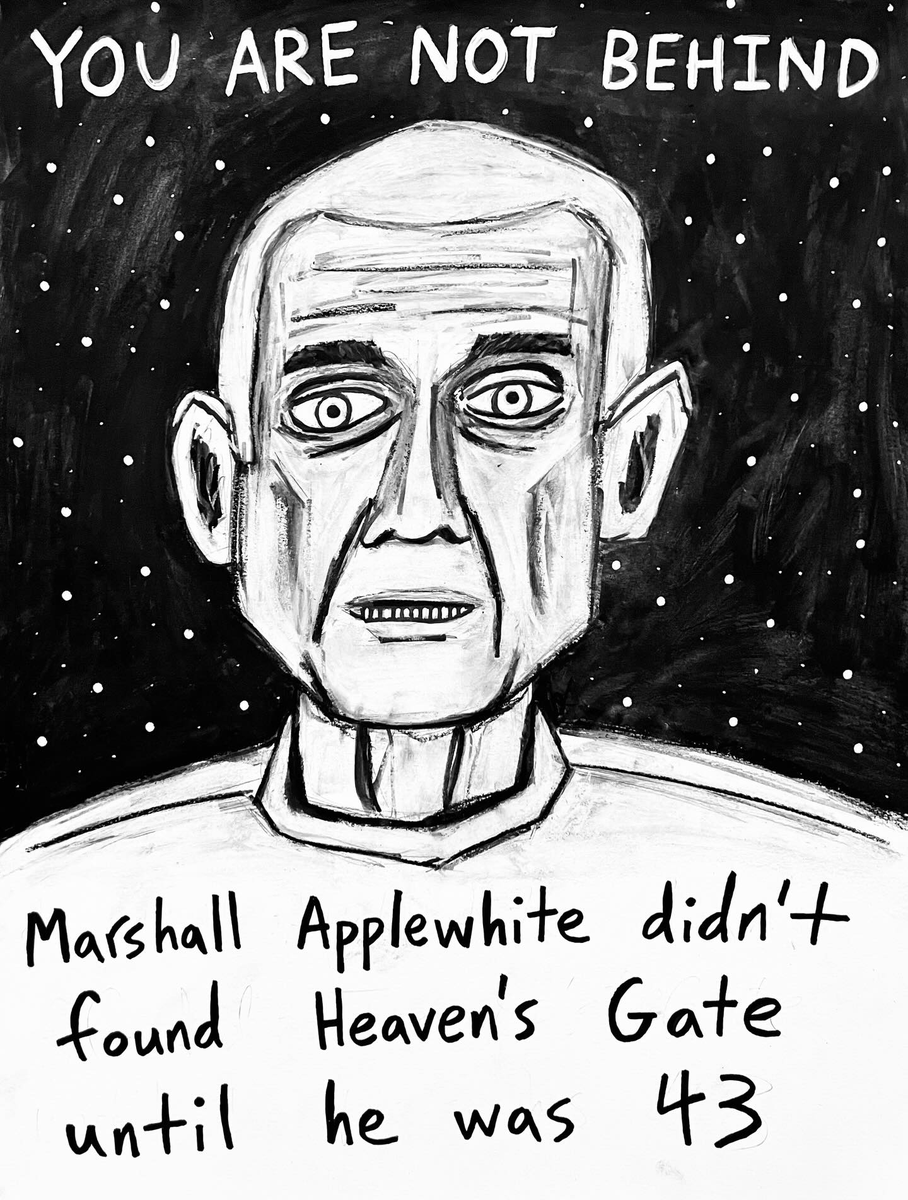 YOU ARE NOT BEHIND
Marshall Applewhite didn't
found Heaven's Gate
until he was 43